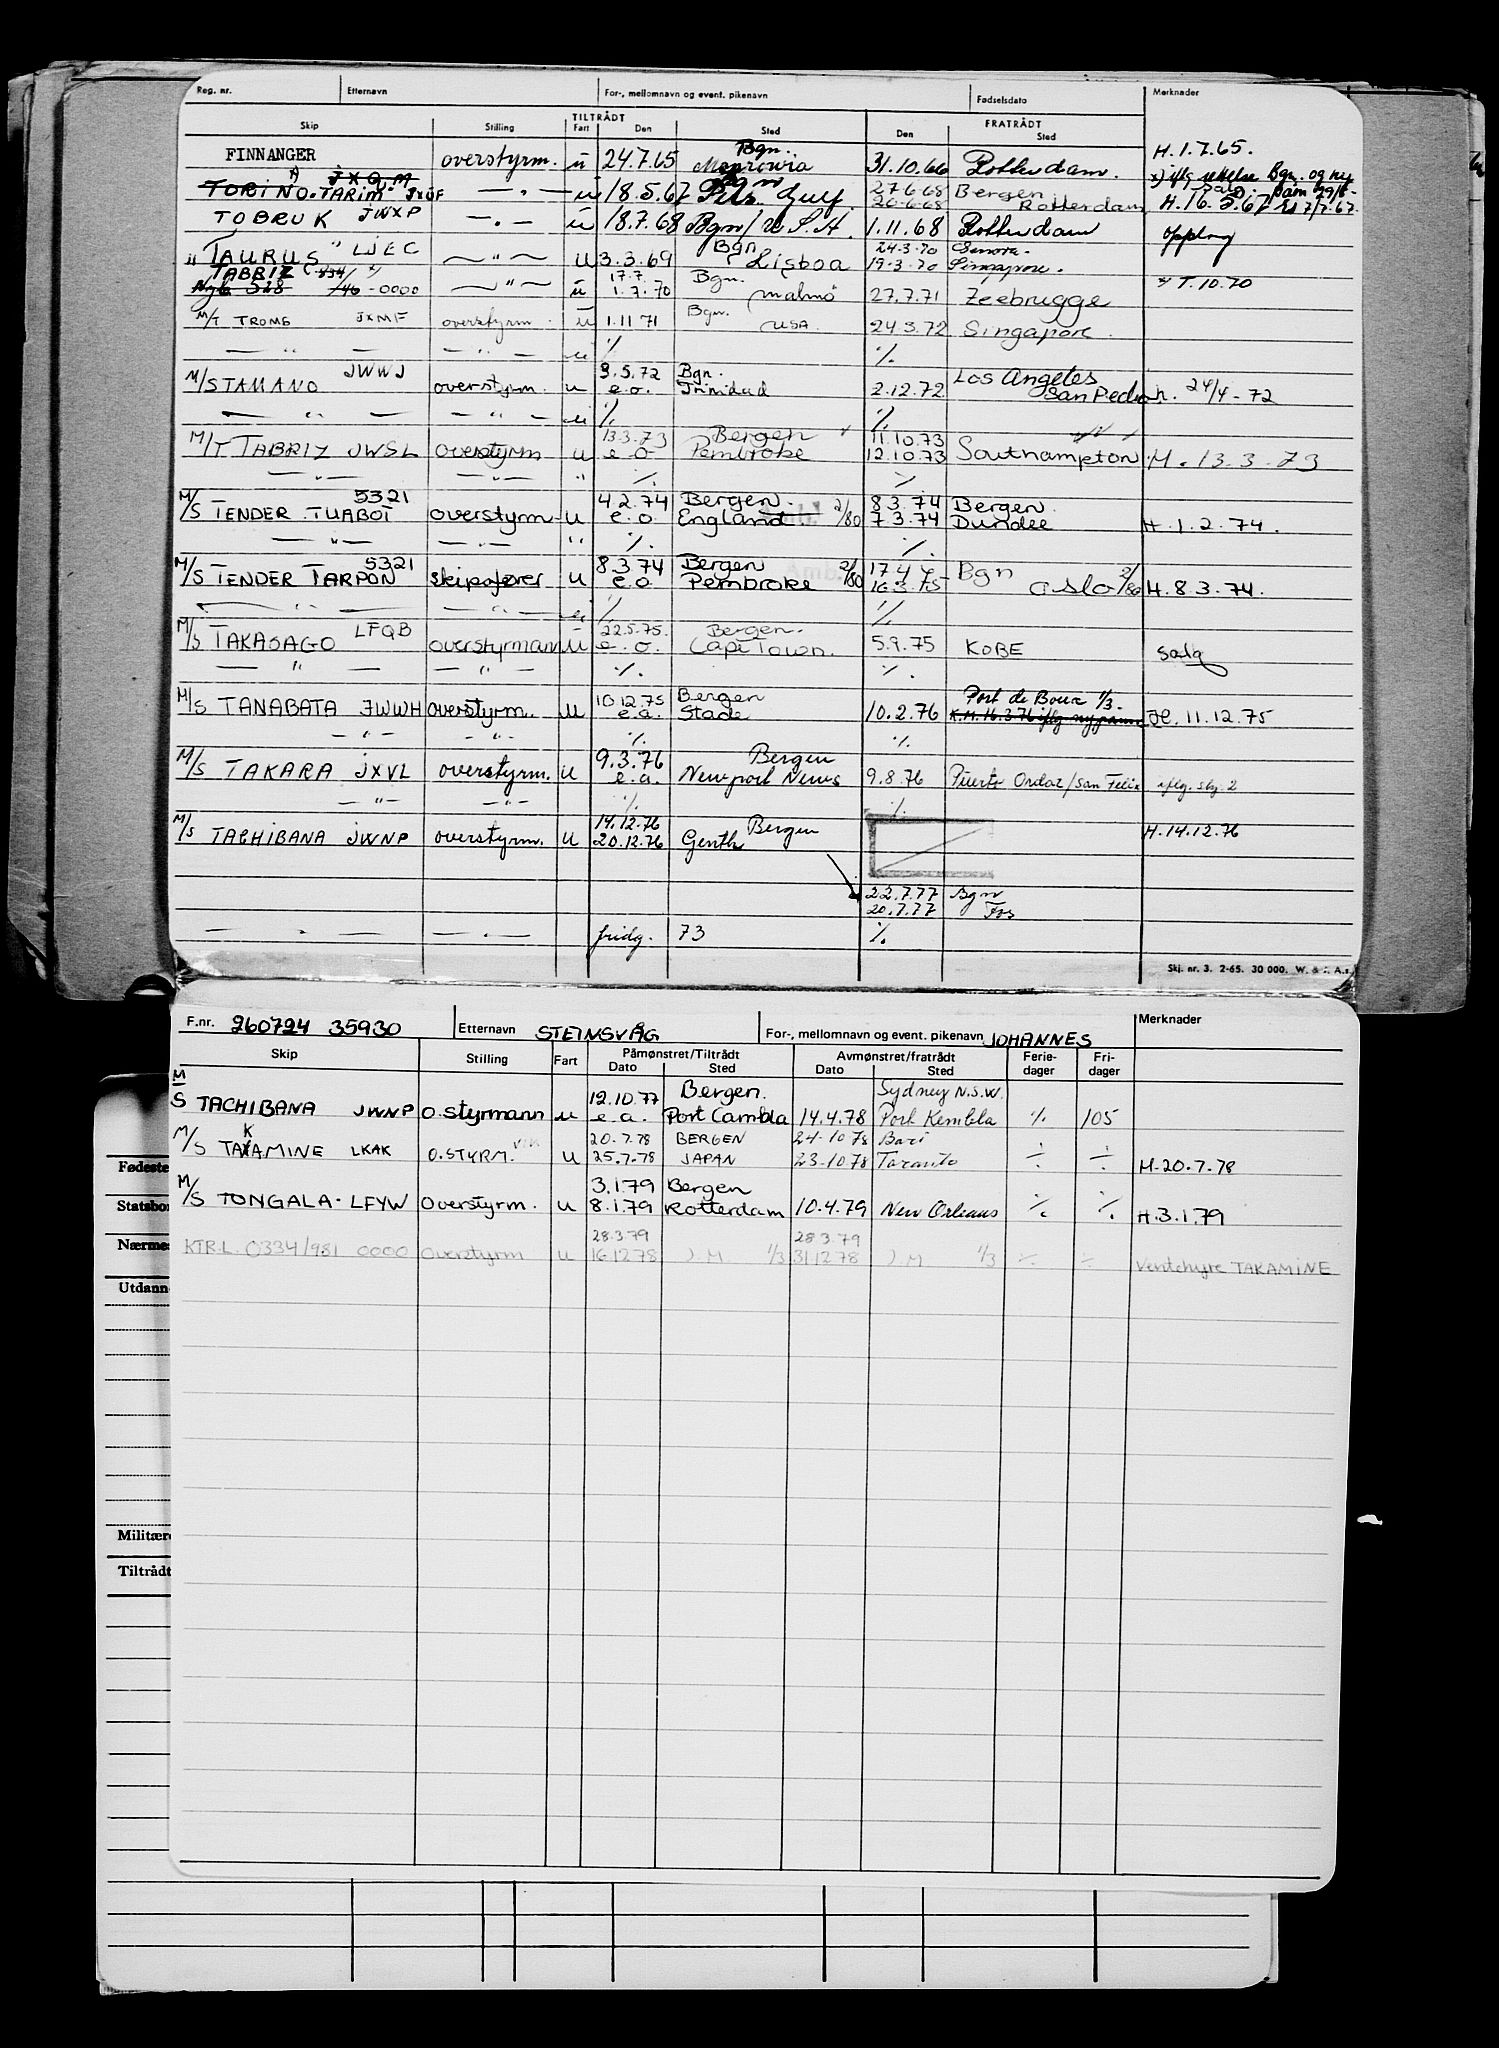 Reg. nr. Etternavn For-, mellomnavn og event. pikenavn Fødselsdato Merknader
TILTRÅDT FRATRÅDT
Skip Stilling Fart Den Sted Den Sted
FINNANGER overstyrm. u 24.7.65 Bgn. Monrovia 31.10.66 Rotterdam. H.1.7.65.
JXQM
TORINO-TARIM JXGF —"— u 18.5.67 Pers. Gulf 27.6.68 Bergen
26.6.68 Rotterdam H.16.5.67
TOBRUK JWXP —"— u 18.7.68 Bgn/U.S.A. 1.11.68 Rotterdam opplag
" TAURUS LJEC —"— u 3.3.69 Bgn Lisboa 24.3.70 Genova.
19.3.70 Singapore.
TABRIZ 534/
Nyb 528 /46 -0000 —"— u 17.7. 1.7.70 Bgn. Malmö 27.7.71 Zeebrugge T.10.70
M/T TROMS JXMF overstyrm. u 1.11 71 Bgn. USA. 24.3.72 Singapore.
— " — — " — ui % %
M/S TAMANO JWWJ overstyrm. u 3.5.72 Bgn. Los Angeles
e.o. Trinidad 2.12.72 San Pedro h. 24/4-72
— " — — " — ui % %
M/T TABRIZ JWSL overstyrm u 13.3.73 Bergen 11.10.73
e.o Pembroke 12.10.73 Southampton M. 13.3.73
— " — — " — " % %
M/S TENDER TUABOT 5321 overstyrm u 4.2.74 Bergen. 8.3.74 Bergen
e.o England 2/80 7.3.74 Dundee H.1.2.74.
— " — — " — " % %
M/S TENDER TARPON 5321 Skipsfører u 8.3.74 Bergen Bgn
e.o Pembroke 2/80 16.3.75 Oslo 2/80 H.8.3.74.
% %
M/S TAKASAGO LFQB overstyrman u 22.5.75. Bergen.
e.o. Cape Town. 5.9.75 KOBE salg
— " — — " — % %
M/S TANABATA JWWH overstyrm. u 10.12.75 Bergen Port de Bouc 1/3.
e.a. Stade 10.2.76 H. 11.12.75
— " — — " — % %
M/S TAKARA JXVL overstyrm. u 9.3.76 Bergen
e.a. Newport News 9.8.76 Puerto Ordaz/San Felix iflg. skj. 2
— " — — " — % %
M/S TACHIBANA JWNP overstyrm. u 14.12.76 Bergen H.14.12.76
20.12.76 Genth
22.7.77 Bgn
20.7.77 Fos
— " — — " — fridg. 73 %
Skj. nr. 3. 2-65. 30 000. W. & Co. A.s.
F.nr. 260724 35930 Etternavn STEINSVÅG For-, mellomnavn og event. pikenavn JOHANNES Merknader
Skip Stilling Fart Påmønstret/Tiltrådt Avmønstret/fratrådt Ferie-dager Fri-dager
Dato Sted Dato Sted
M/S TACHIBANA JWNP O.styrmann u 12.10.77 Bergen. Sydney N.S.W.
e.a. Port Cambla 14.4.78 Port Kembla % 105
M/S TAKAMINE LKAK O.STYRM. u 20.7.78 BERGEN 24.10 78 Bari
25.7.78 JAPAN 23.10 78 Taranto ÷ ÷ H-20.7-78
M/S TONGALA- LFYW Overstyrm. u 3.1.79 Bergen
8.1.79 Rotterdam 10.4.79 New Orleans % % H.3.1.79
KTR.L. 0334/981 0000 Overstyrm u 28.3.79 28.3.79
16.12.78 J.M 1/3 31.12.78 J.M 1/3 ÷ ÷ Ventehyre TAKAMINE
Fødeste
Statsbor
Nærmes
Utdann
Militære
Tiltrådt